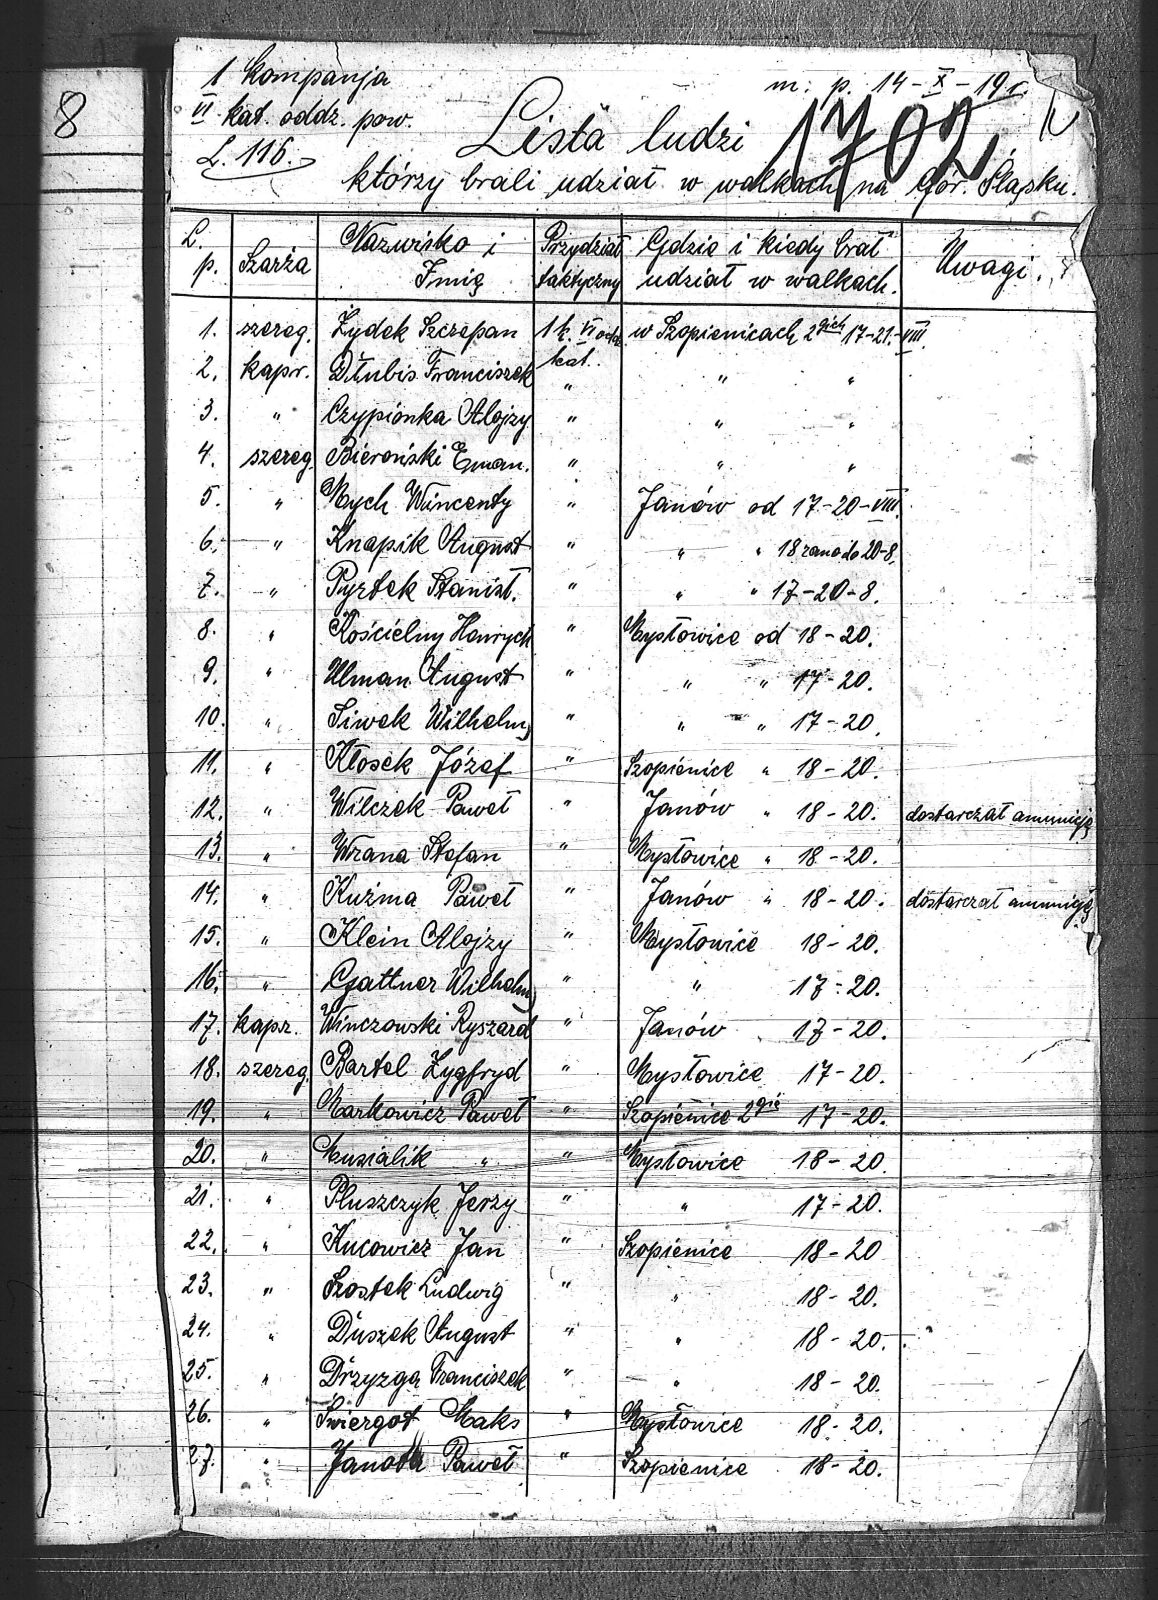 8
1 kompanja
m. p. 14-X-19 r.
VI kat. oddz. pow.
L. 116.
Lista ludzi
1702
którzy brali udział w walkach na Gór. Śląsku.
L. p. Szarża Nazwisko i Imię Przydział taktyczny Gdzie i kiedy brał udział w walkach. Uwagi.
1. szereg. Żydek Szczepan 1 k. VI oddz. kat. w Szopienicach 2gich 17-21-VIII.
2. kapr. Dłubis Franciszek " " "
3. " Czypionka Alojzy " " "
4. szereg. Bieroński Eman. " " "
5. " Mych Wincenty " Janów od 17-20-VIII.
6. " Knapik August " " " 18 rano do 20-8.
7. " Pyrtek Stanisł. " " " 17-20-8.
8. " Kościelny Henryk " Mysłowice od 18-20.
9. " Ulman August " " " 17-20.
10. " Siwek Wilhelm " " " 17-20.
11. " Kłosek Józef " Szopienice " 18-20.
12. " Wilczek Paweł " Janów " 18-20. dostarczał amunicję
13. " Wrana Stefan " Mysłowice " 18-20.
14. " Kuźma Paweł " Janów " 18-20. dostarczał amunicję
15. " Klein Alojzy " Mysłowice 18-20.
16. " Gattner Wilhelm " " 17-20.
17. kapr. Winczowski Ryszard " Janów 17-20.
18. szereg. Bartel Zygfryd " Mysłowice 17-20.
19. " Markowicz Paweł " Szopienice 2gie 17-20.
20. " Musialik " " Mysłowice 18-20.
21. " Pluszczyk Jerzy " " 17-20.
22. " Kucowicz Jan " Szopienice 18-20
23. " Szostek Ludwig " " 18-20.
24. " Duszek August " " 18-20.
25. " Drzyzga Franciszek " " 18-20.
26. " Świergot Maks " Mysłowice 18-20.
27. " Janota Paweł " Szopienice 18-20.